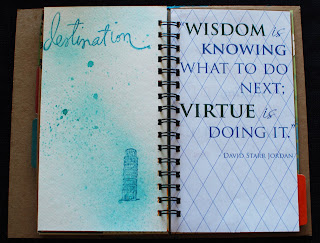 destination
"WISDOM is
KNOWING
WHAT TO DO
NEXT;
VIRTUE is
DOING IT."
DAVID STARR JORDAN